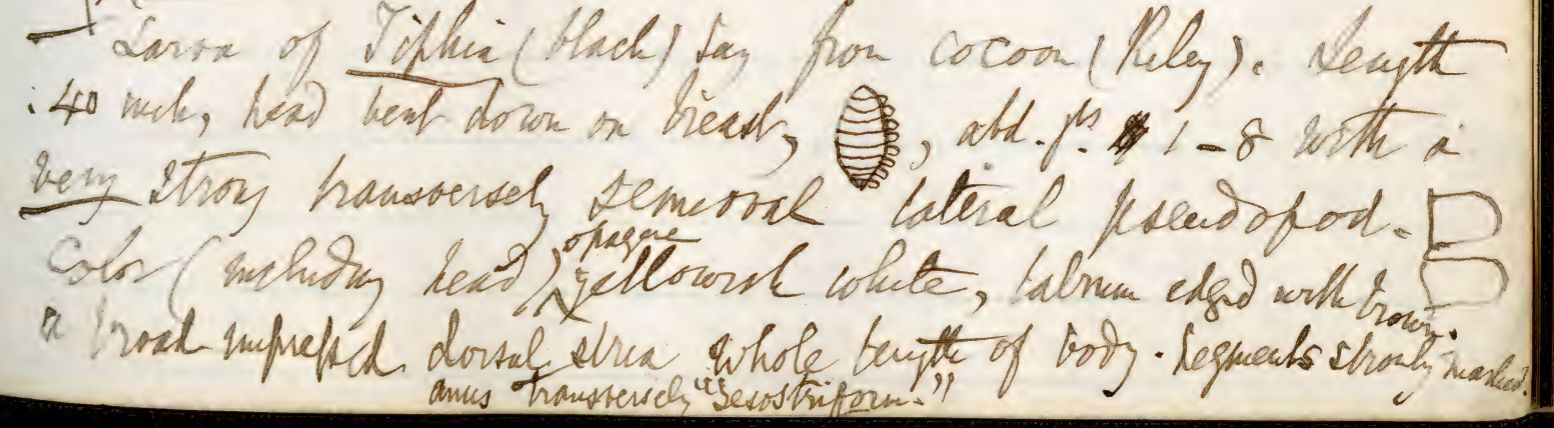 Larva of Tiphia (black) Say from cocoon (Riley). Length
.40 inch, head bent down on breast, , abd. jts 1 - 8 with a
very strong transversely semioval lateral pseudopod.
Color (including head) opaque yellowish white, labrum edged with brown.
a broad impressed dorsal stria whole length of body. Segments strongly marked.
anus transversely "sesostriform."